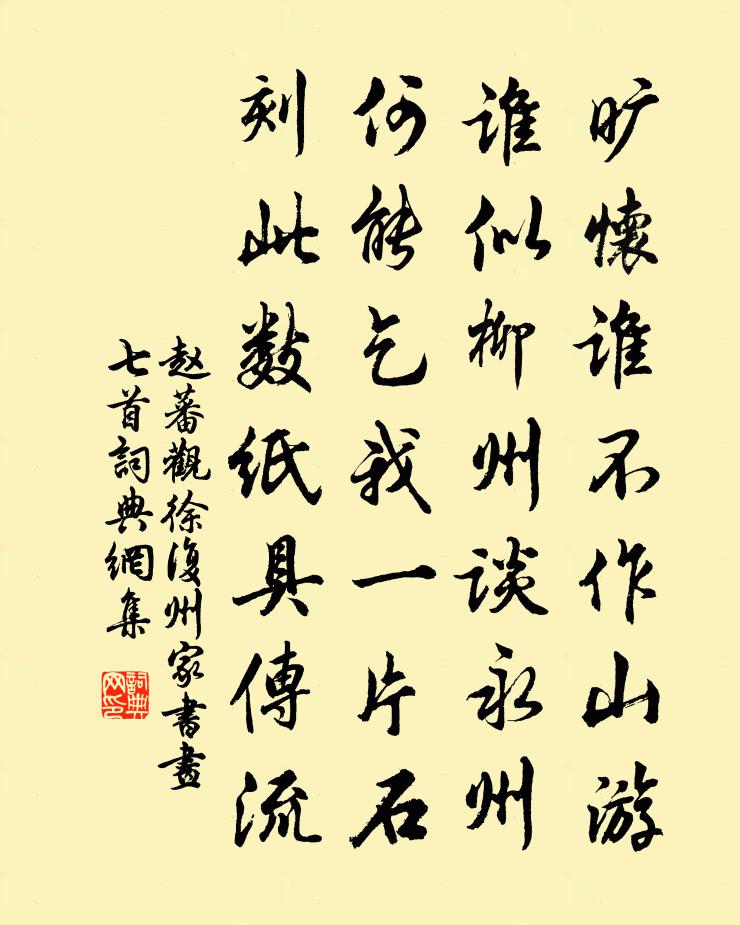 旷懷谁不作山游
谁似柳州谈永州
何能乞我一片石
刻此数纸具傳流
赵蕃觀徐復州家書畫
七首詞典網集
詞典
网印